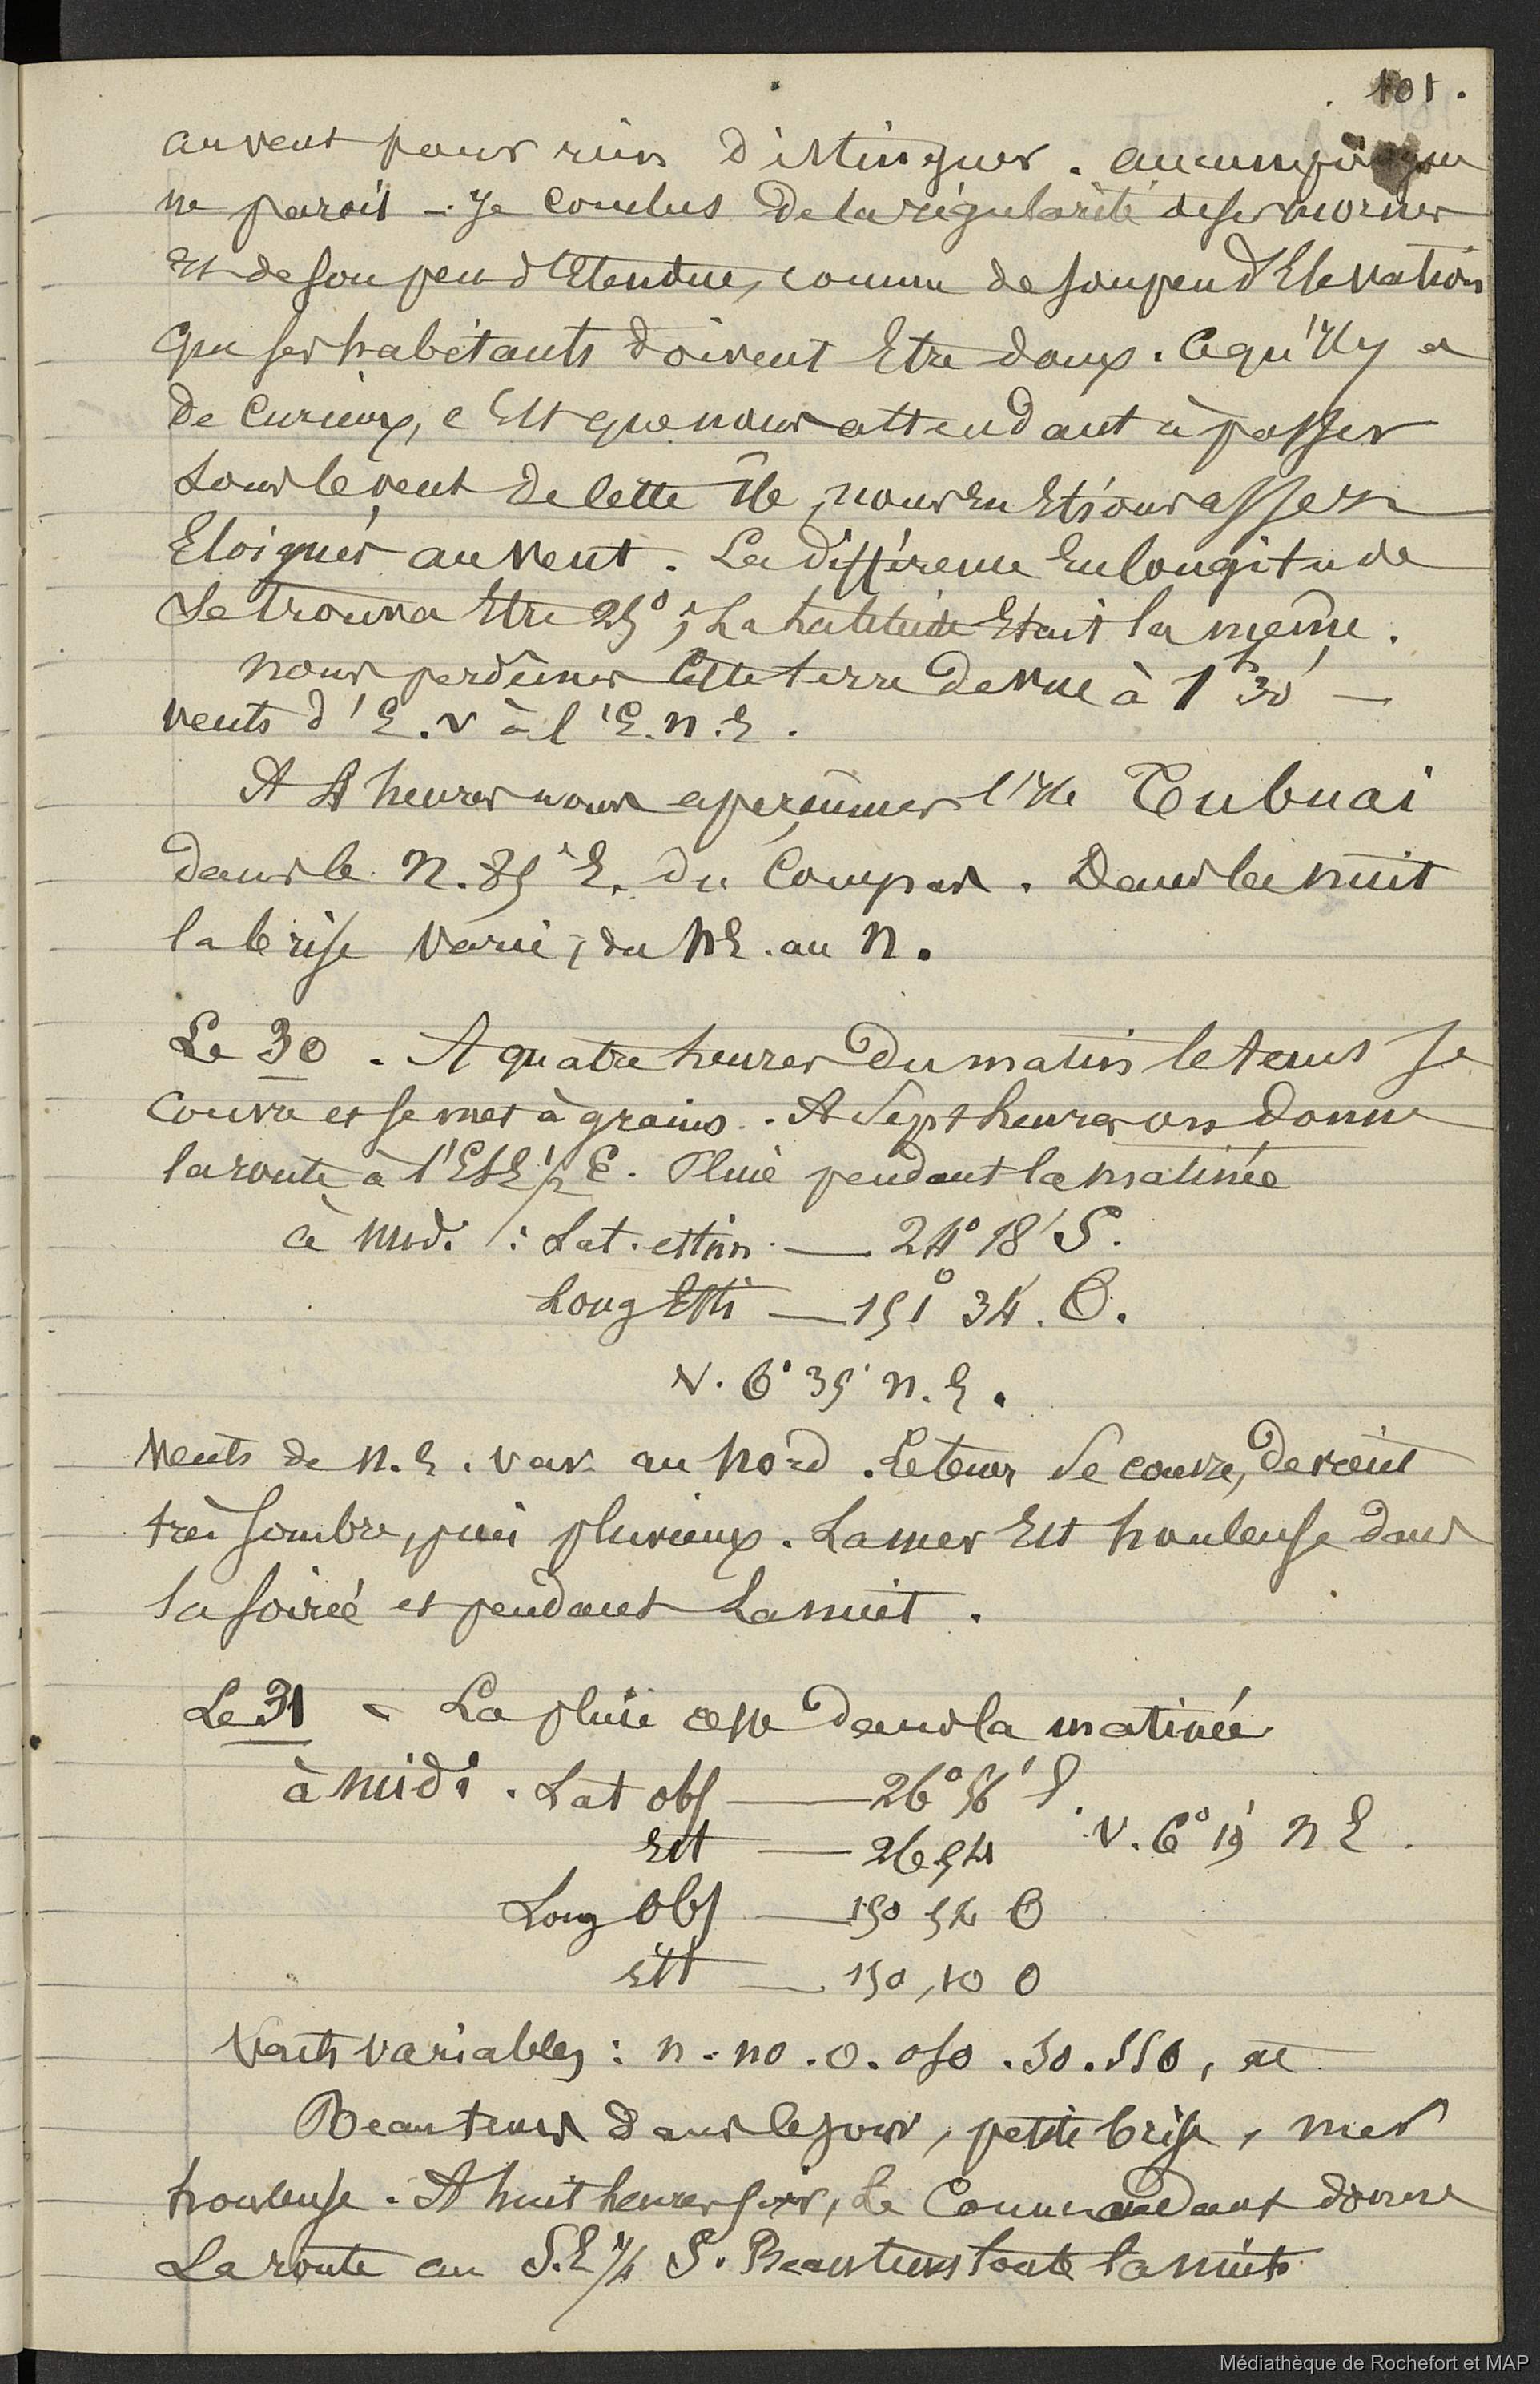 101.
au vent pour rien distinguer. aucune pirogue
ne paroit - Je conclus de la régularité de ses mornes
Et de son peu d'Etendue, comme de son peu d'Elevation
que ses habitants doivent Etre doux. Ce qu'Il y a
de Curieux, c'Est que nous attendant à passer
sous le vent de cette île, nous En Etions assez
Eloignés au vent. La différence En longitude
Se trouva Etre 25°; La Latitude Etait la même.
nous perdîmes Cette terre de vue à 1h 30' —
vents d'E. v à l'E.N.E.
A 4 heures nous aperçûmes l'Ile Tubuai
dans le N. 85° E. du Compas. Dans la nuit
la brise varie, du NE. au N.
Le 30. A quatre heures du matin le tems se
couvre et se met à grains. A Sept heures on donne
la route à l'ESE 1/2 E. Pluie pendant la matinée
à midi : Lat. estim. — 24° 18' S.
Long Esti — 151° 34'. O.
V. 6° 35' N.E.
Vents de N.E. var. au Nord. Le tems Se couvre, devient
très sombre, puis pluvieux. La mer Est houleuse dans
la soirée et pendant La nuit.
Le 31 - La pluie cesse dans la matinée
à midi. Lat obs — 26° 56' S.
Est — 26 54 V. 6° 19' N E.
Long Obs — 150 52 O
Est — 150, 10 O
Vents variables : n. no. o. oso. so. sso, et
Beau tems dans le jour, petite brise, mer
houleuse. A huit heures soir, Le Commandant donne
La route au S.E 1/4 S. Beau tems toute la nuit
Médiathèque de Rochefort et MAP